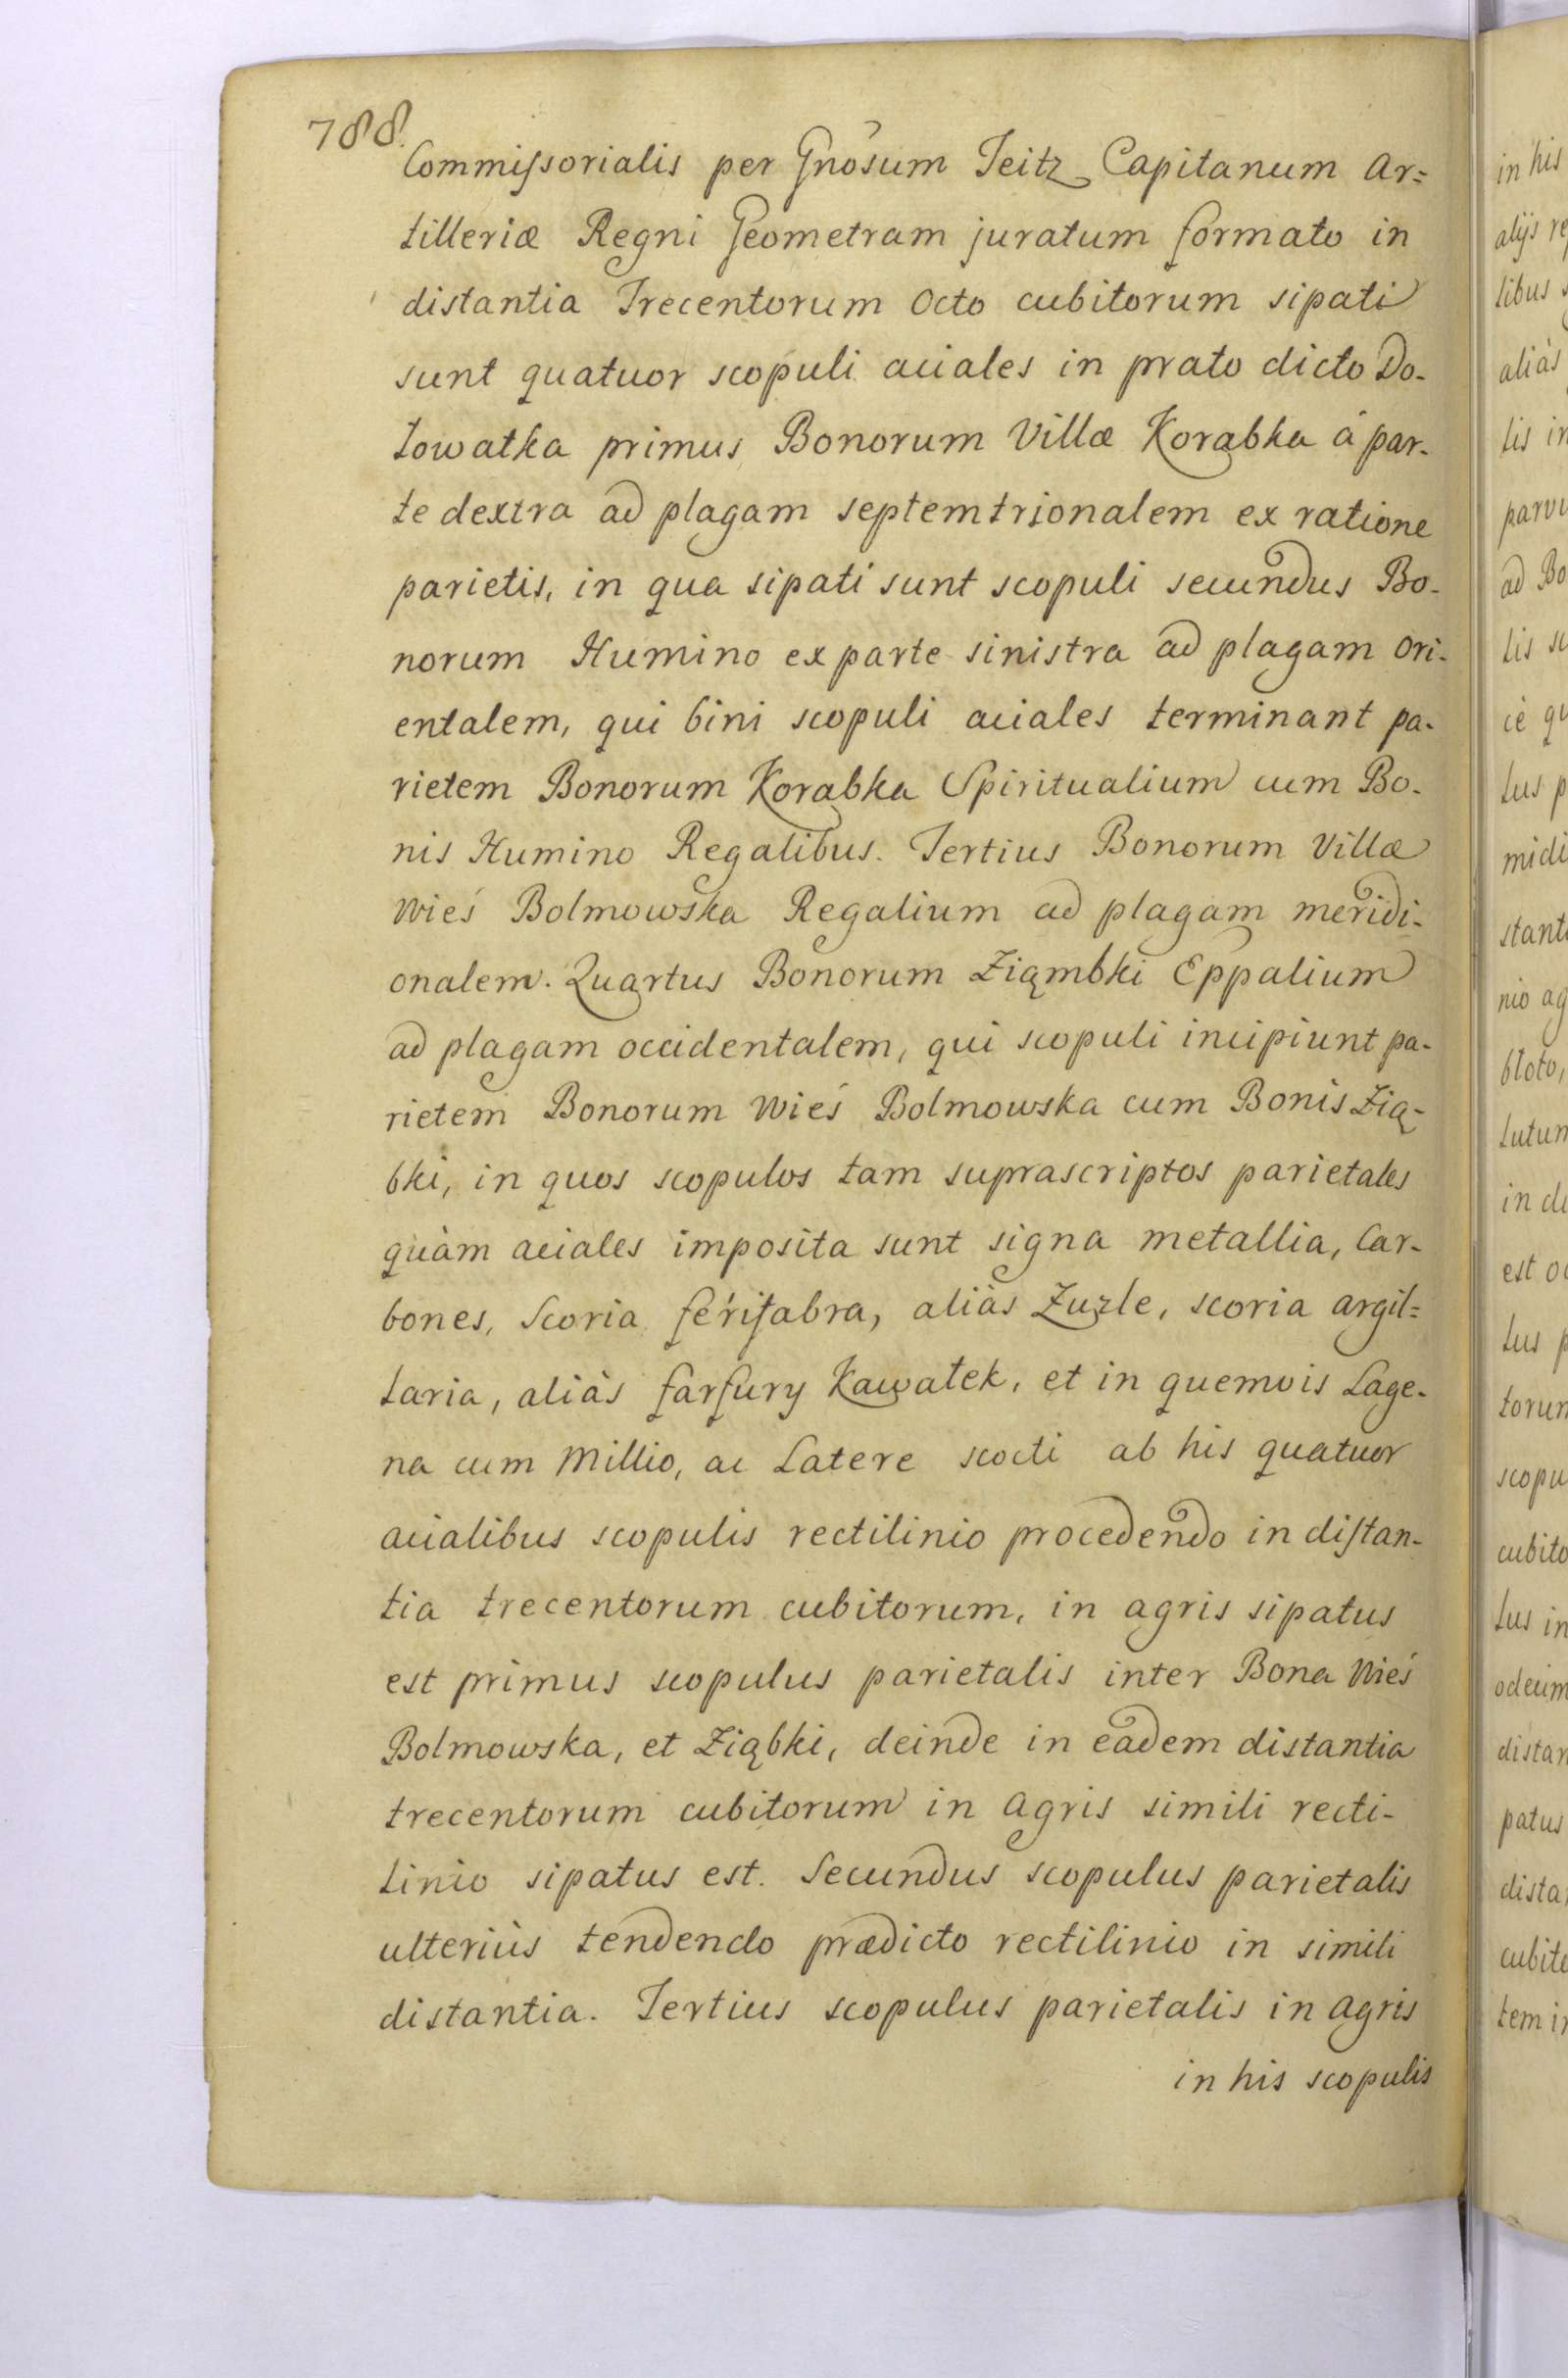 788.
Commißorialis per Gnosum Teitz Capitanum Ar=
tilleriæ Regni Geometram juratum formato in
distantia Trecentorum Octo cubitorum sipati
sunt quatuor scopuli aciales in prato dicto Do-
łowatka primus Bonorum Villæ Korabka á par-
te dextra ad plagam septemtrionalem ex ratione
parietis, in qua sipati sunt scopuli secundus Bo-
norum Humino ex parte sinistra ad plagam Ori-
entalem, qui bini scopuli aciales terminant pa-
rietem Bonorum Korabka Spiritualium cum Bo-
nis Humino Regalibus. Tertius Bonorum Villæ
Wieś Bolmowska Regalium ad plagam meridi-
onalem. Quartus Bonorum Ziąmbki Eppalium
ad plagam occidentalem, qui scopuli incipiunt pa-
rietem Bonorum Wieś Bolmowska cum Bonis Zią-
bki, in quos scopulos tam suprascriptos parietales
quàm aciales imposita sunt signa metallia, Car-
bones, Scoria ferifabra, aliàs Zuzle, scoria argil=
laria, aliàs farfury Kawałek, et in quemvis Lage-
na cum Millio, ac Latere scocti ab his quatuor
acialibus scopulis rectilinio procedendo in distan-
tia trecentorum cubitorum, in agris sipatus
est primus scopulus parietalis inter Bona Wieś
Bolmowska, et Ziąbki, deinde in eadem distantia
trecentorum cubitorum in agris simili recti-
linio sipatus est. Secundus scopulus parietalis
ulteriùs tendendo prædicto rectilinio in simili
distantia. Tertius scopulus parietalis in agris
in his scopulis